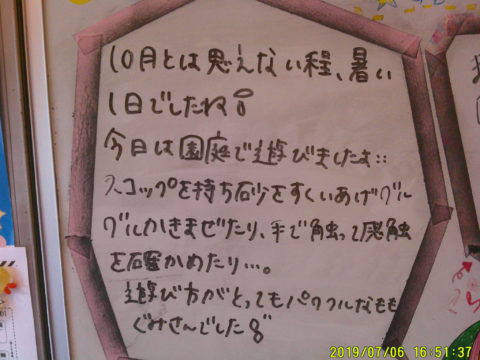 10月とは思えない程、暑い
1日でしたね!
今日は園庭で遊びましたよ::
スコップを持ち砂をすくいあげグル
グルかきまぜたり、手で触って感触
を確かめたり…。
遊び方がとってもパワフルなもも
ぐみさんでした
2019/07/06 16:51:37